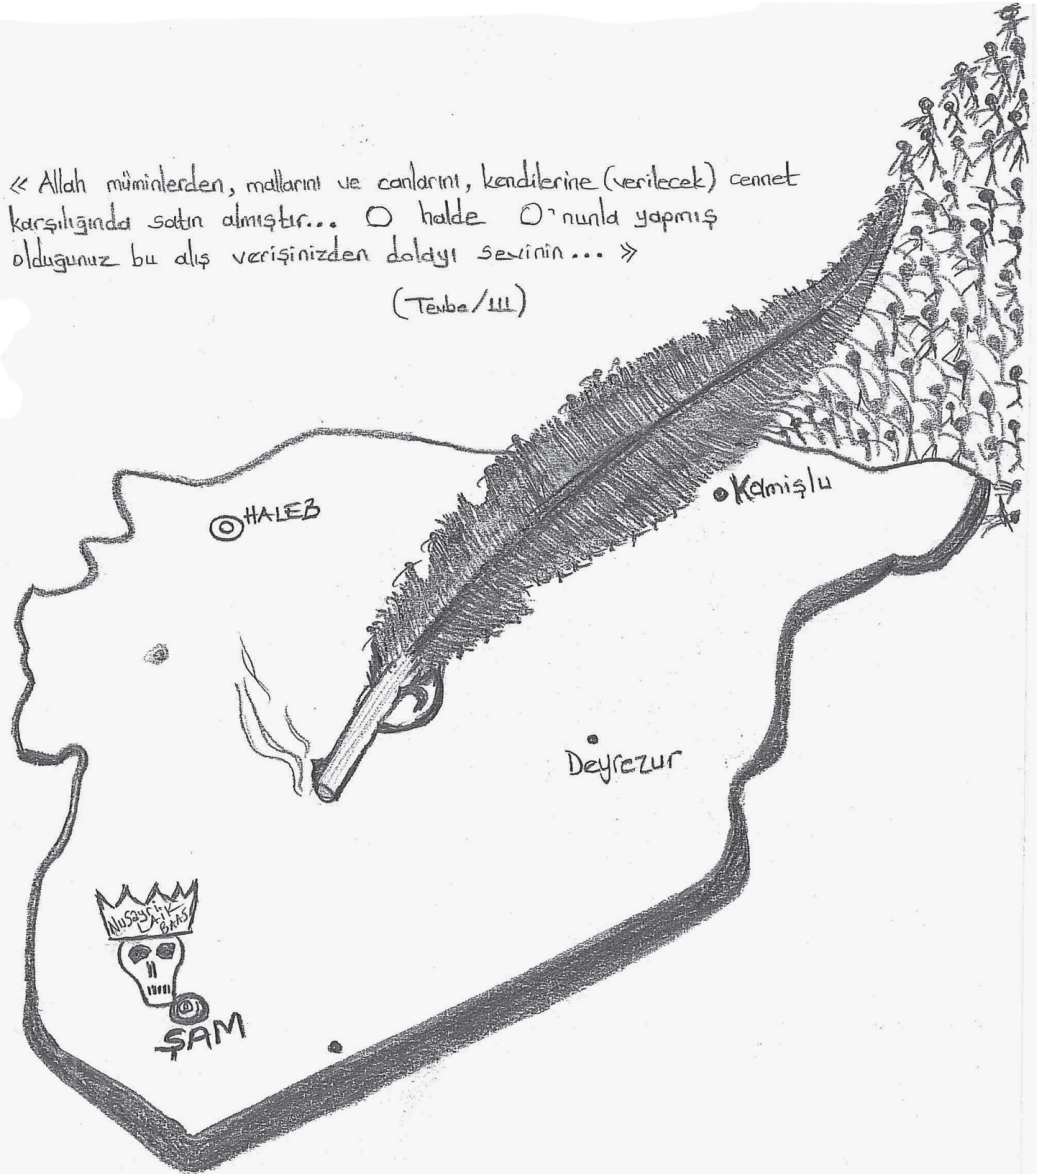 « Allah müminlerden, mallarını ve canlarını, kendilerine (verilecek) cennet
karşılığında satın almıştır... O halde O'nunla yapmış
olduğunuz bu alış verişinizden dolayı sevinin... »
(Tevbe/111)
Kamişlu
HALEB
Deyrezur
Nusayri
LAİK
BAAS
ŞAM